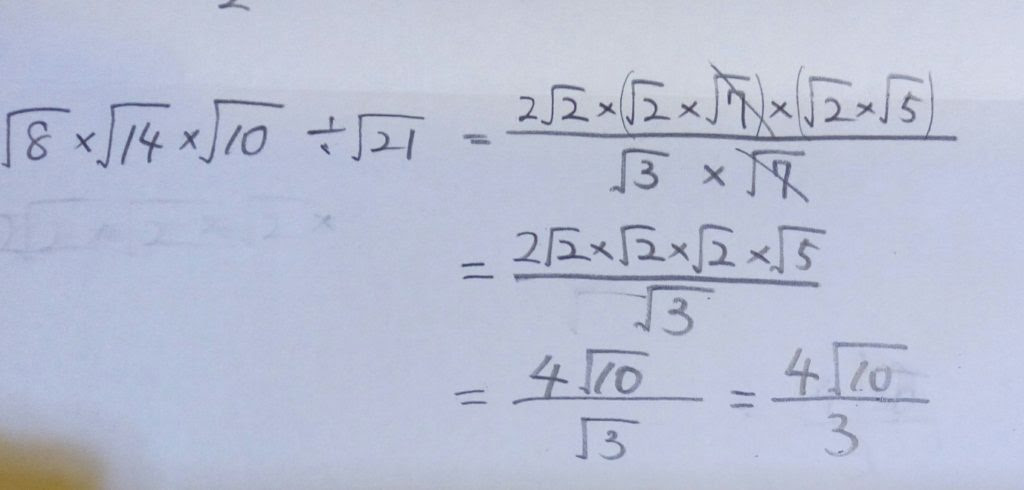 √8 × √14 × √10 ÷ √21 = (2√2 × (√2 × √7) × (√2 × √5)) / (√3 × √7)
= (2√2 × √2 × √2 × √5) / √3
= 4√10 / √3 = 4√10 / 3